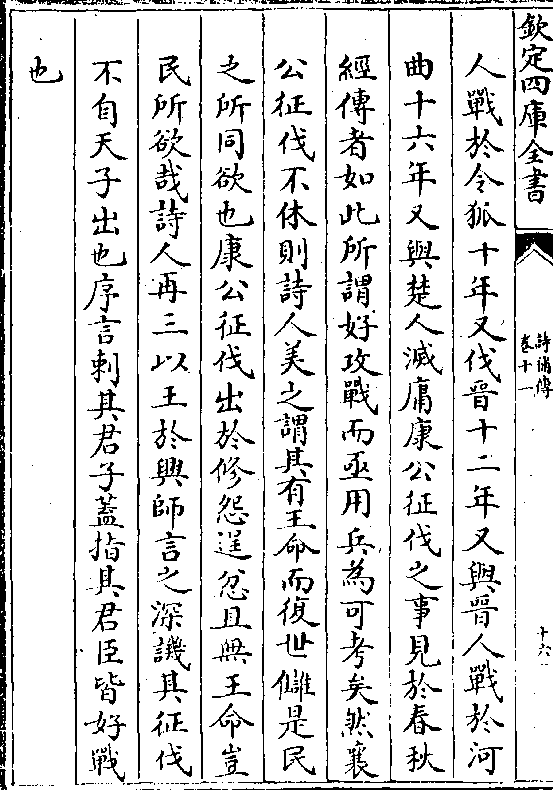 欽定四庫全書
詩補傳
卷十一
十六
人戰於令狐十年又伐晉十二年又與晉人戰於河
曲十六年又與楚人滅庸康公征伐之事見於春秋
經傳者如此所謂好攻戰而亟用兵為可考矣然襄
公征伐不休則詩人美之謂其有王命而復世讎是民
之所同欲也康公征伐出於修怨逞忿且無王命豈
民所欲哉詩人再三以王於興師言之深譏其征伐
不自天子出也序言刺其君子蓋指其君臣皆好戰
也